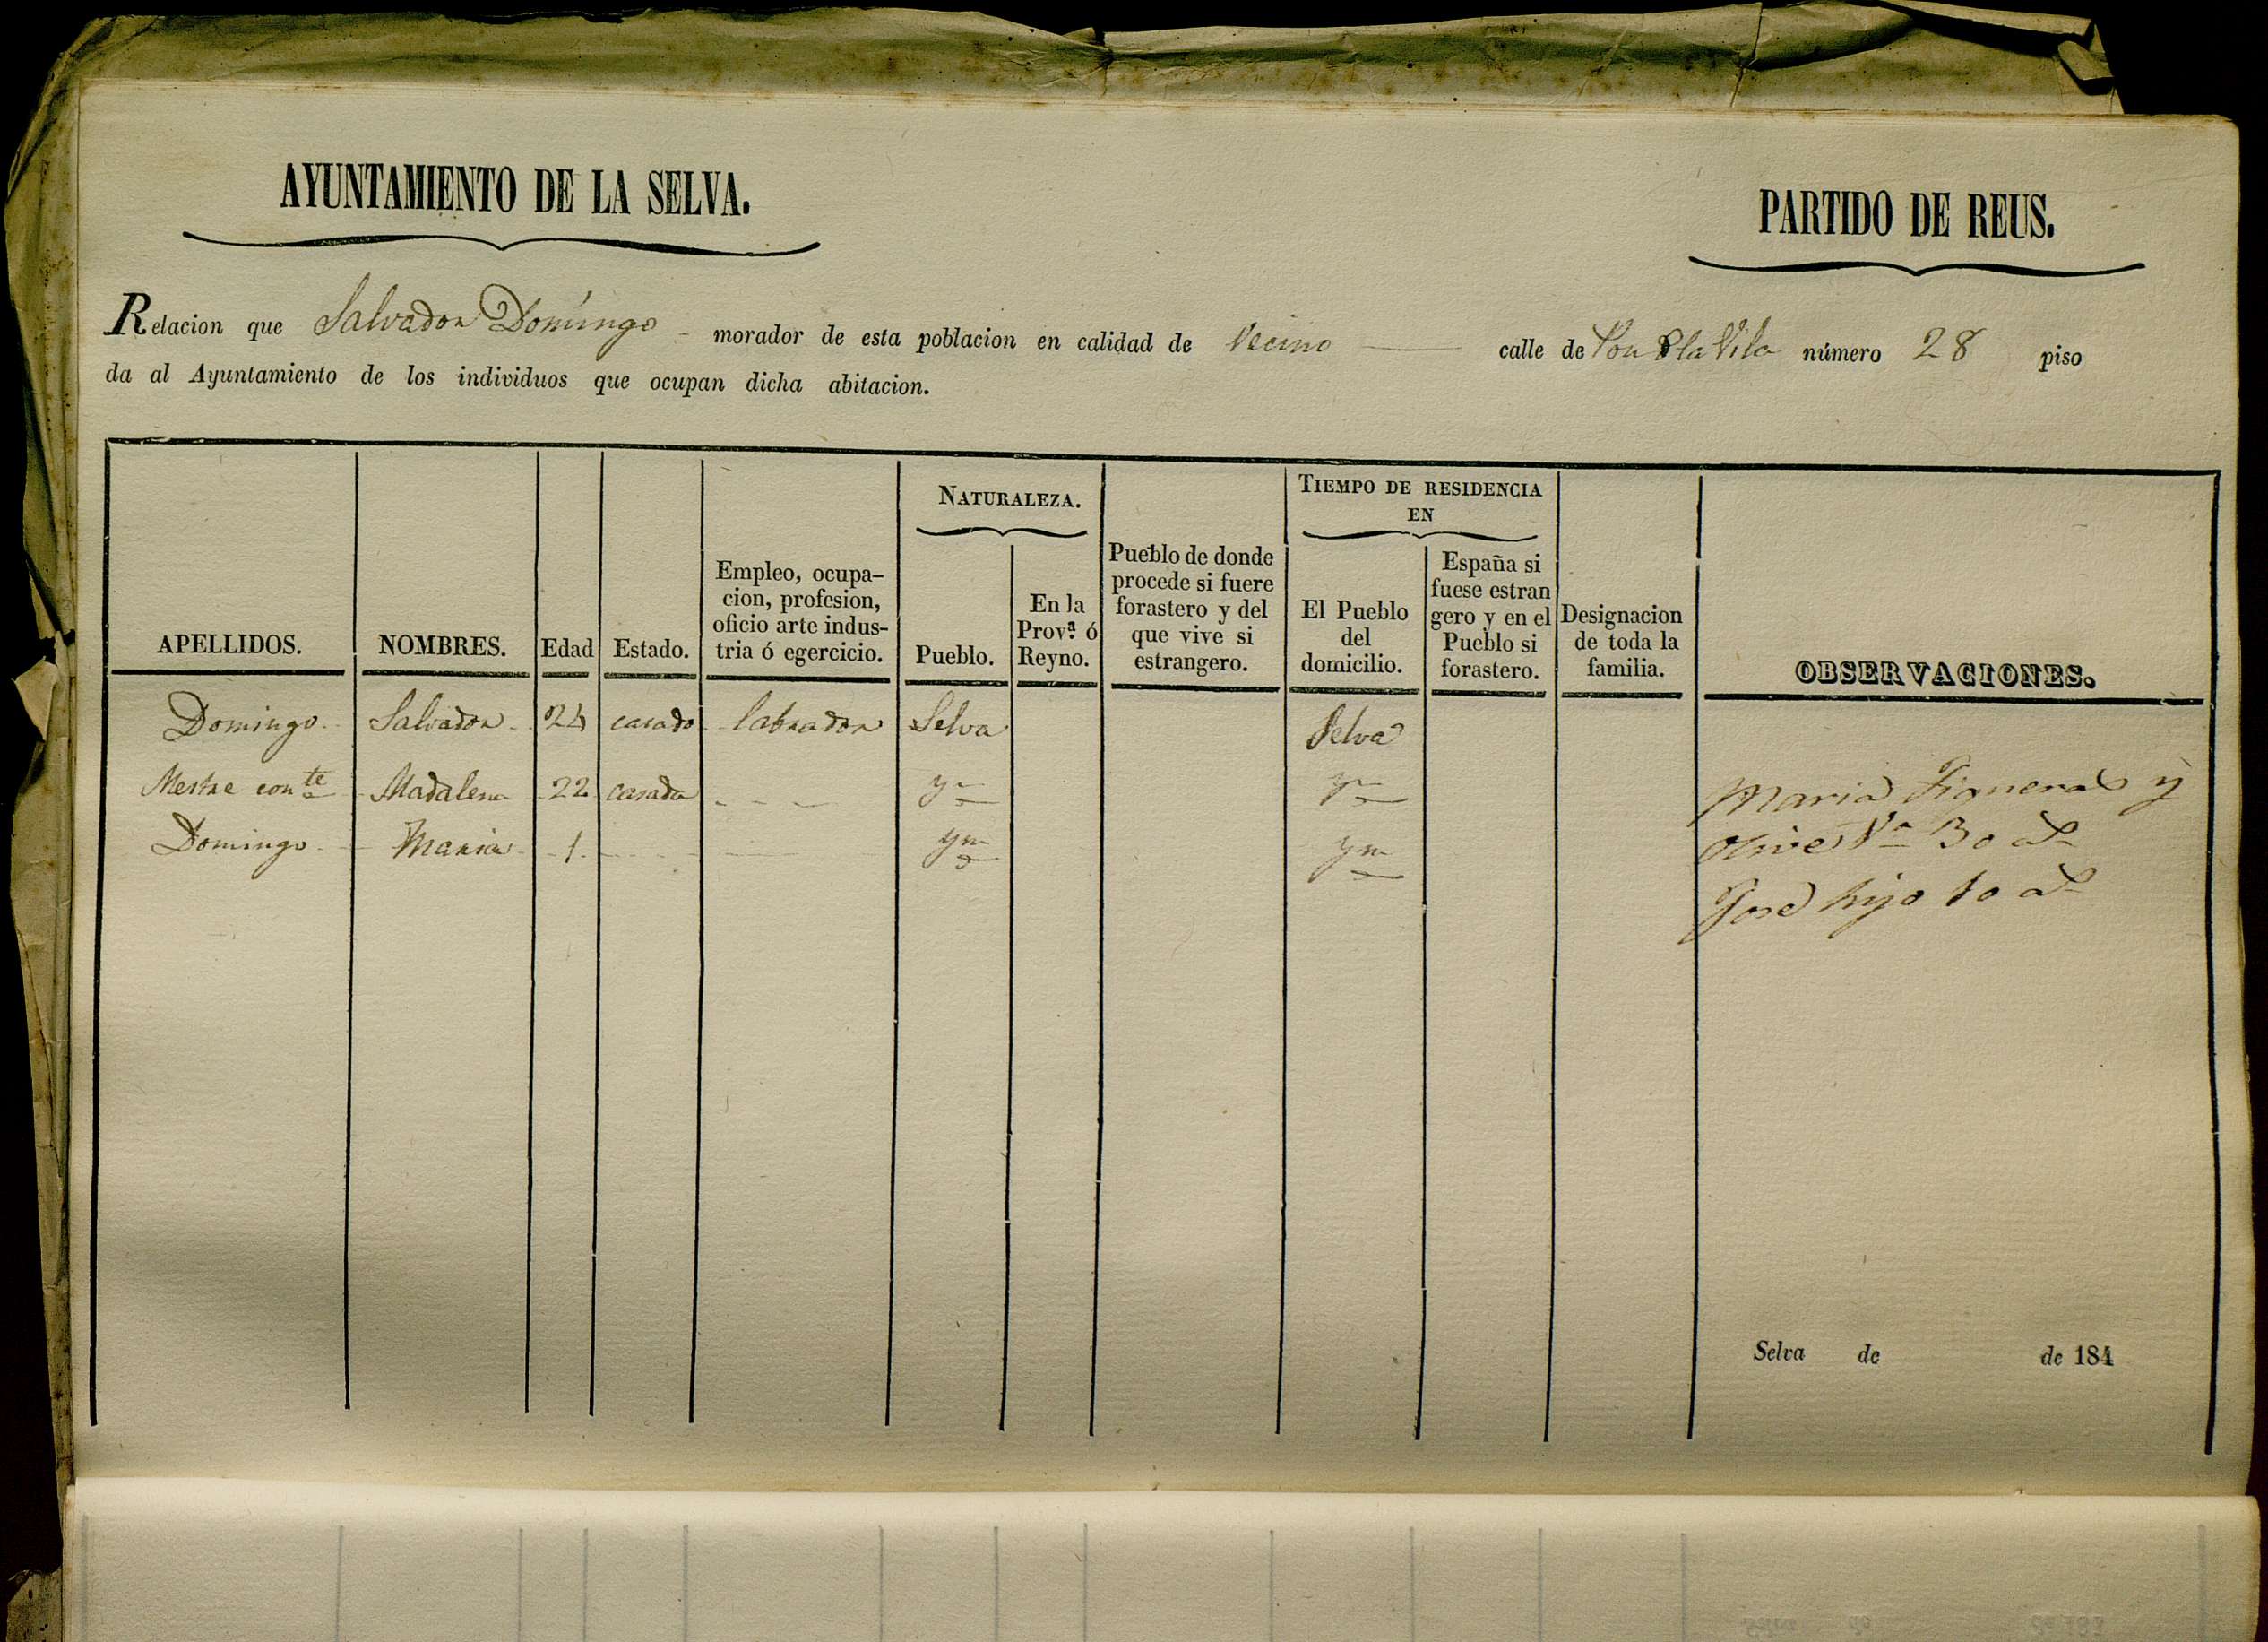 AYUNTAMIENTO DE LA SELVA.
PARTIDO DE REUS.
Relacion que Salvador Domingo morador de esta poblacion en calidad de Vecino calle de la Vila número 28 piso
da al Ayuntamiento de los individuos que ocupan dicha abitacion.
APELLIDOS.
NOMBRES.
Edad
Estado.
Empleo, ocupa-
cion, profesion,
oficio arte indus-
tria ó egercicio.
NATURALEZA.
Pueblo.
En la
Prov.ª ó
Reyno.
Pueblo de donde
procede si fuere
forastero y del
que vive si
estrangero.
TIEMPO DE RESIDENCIA
EN
El Pueblo
del
domicilio.
España si
fuese estran
gero y en el
Pueblo si
forastero.
Designacion
de toda la
familia.
OBSERVACIONES.
Domingo Salvador 24 casado labrador Selva Selva
Mestre con.te Madalena 22 casada - - - yn yn
Domingo Maria 1 ym ym
Maria Figueras y
Olive V.ª 30 a.s
José hijo 10 a.s
Selva de de 184